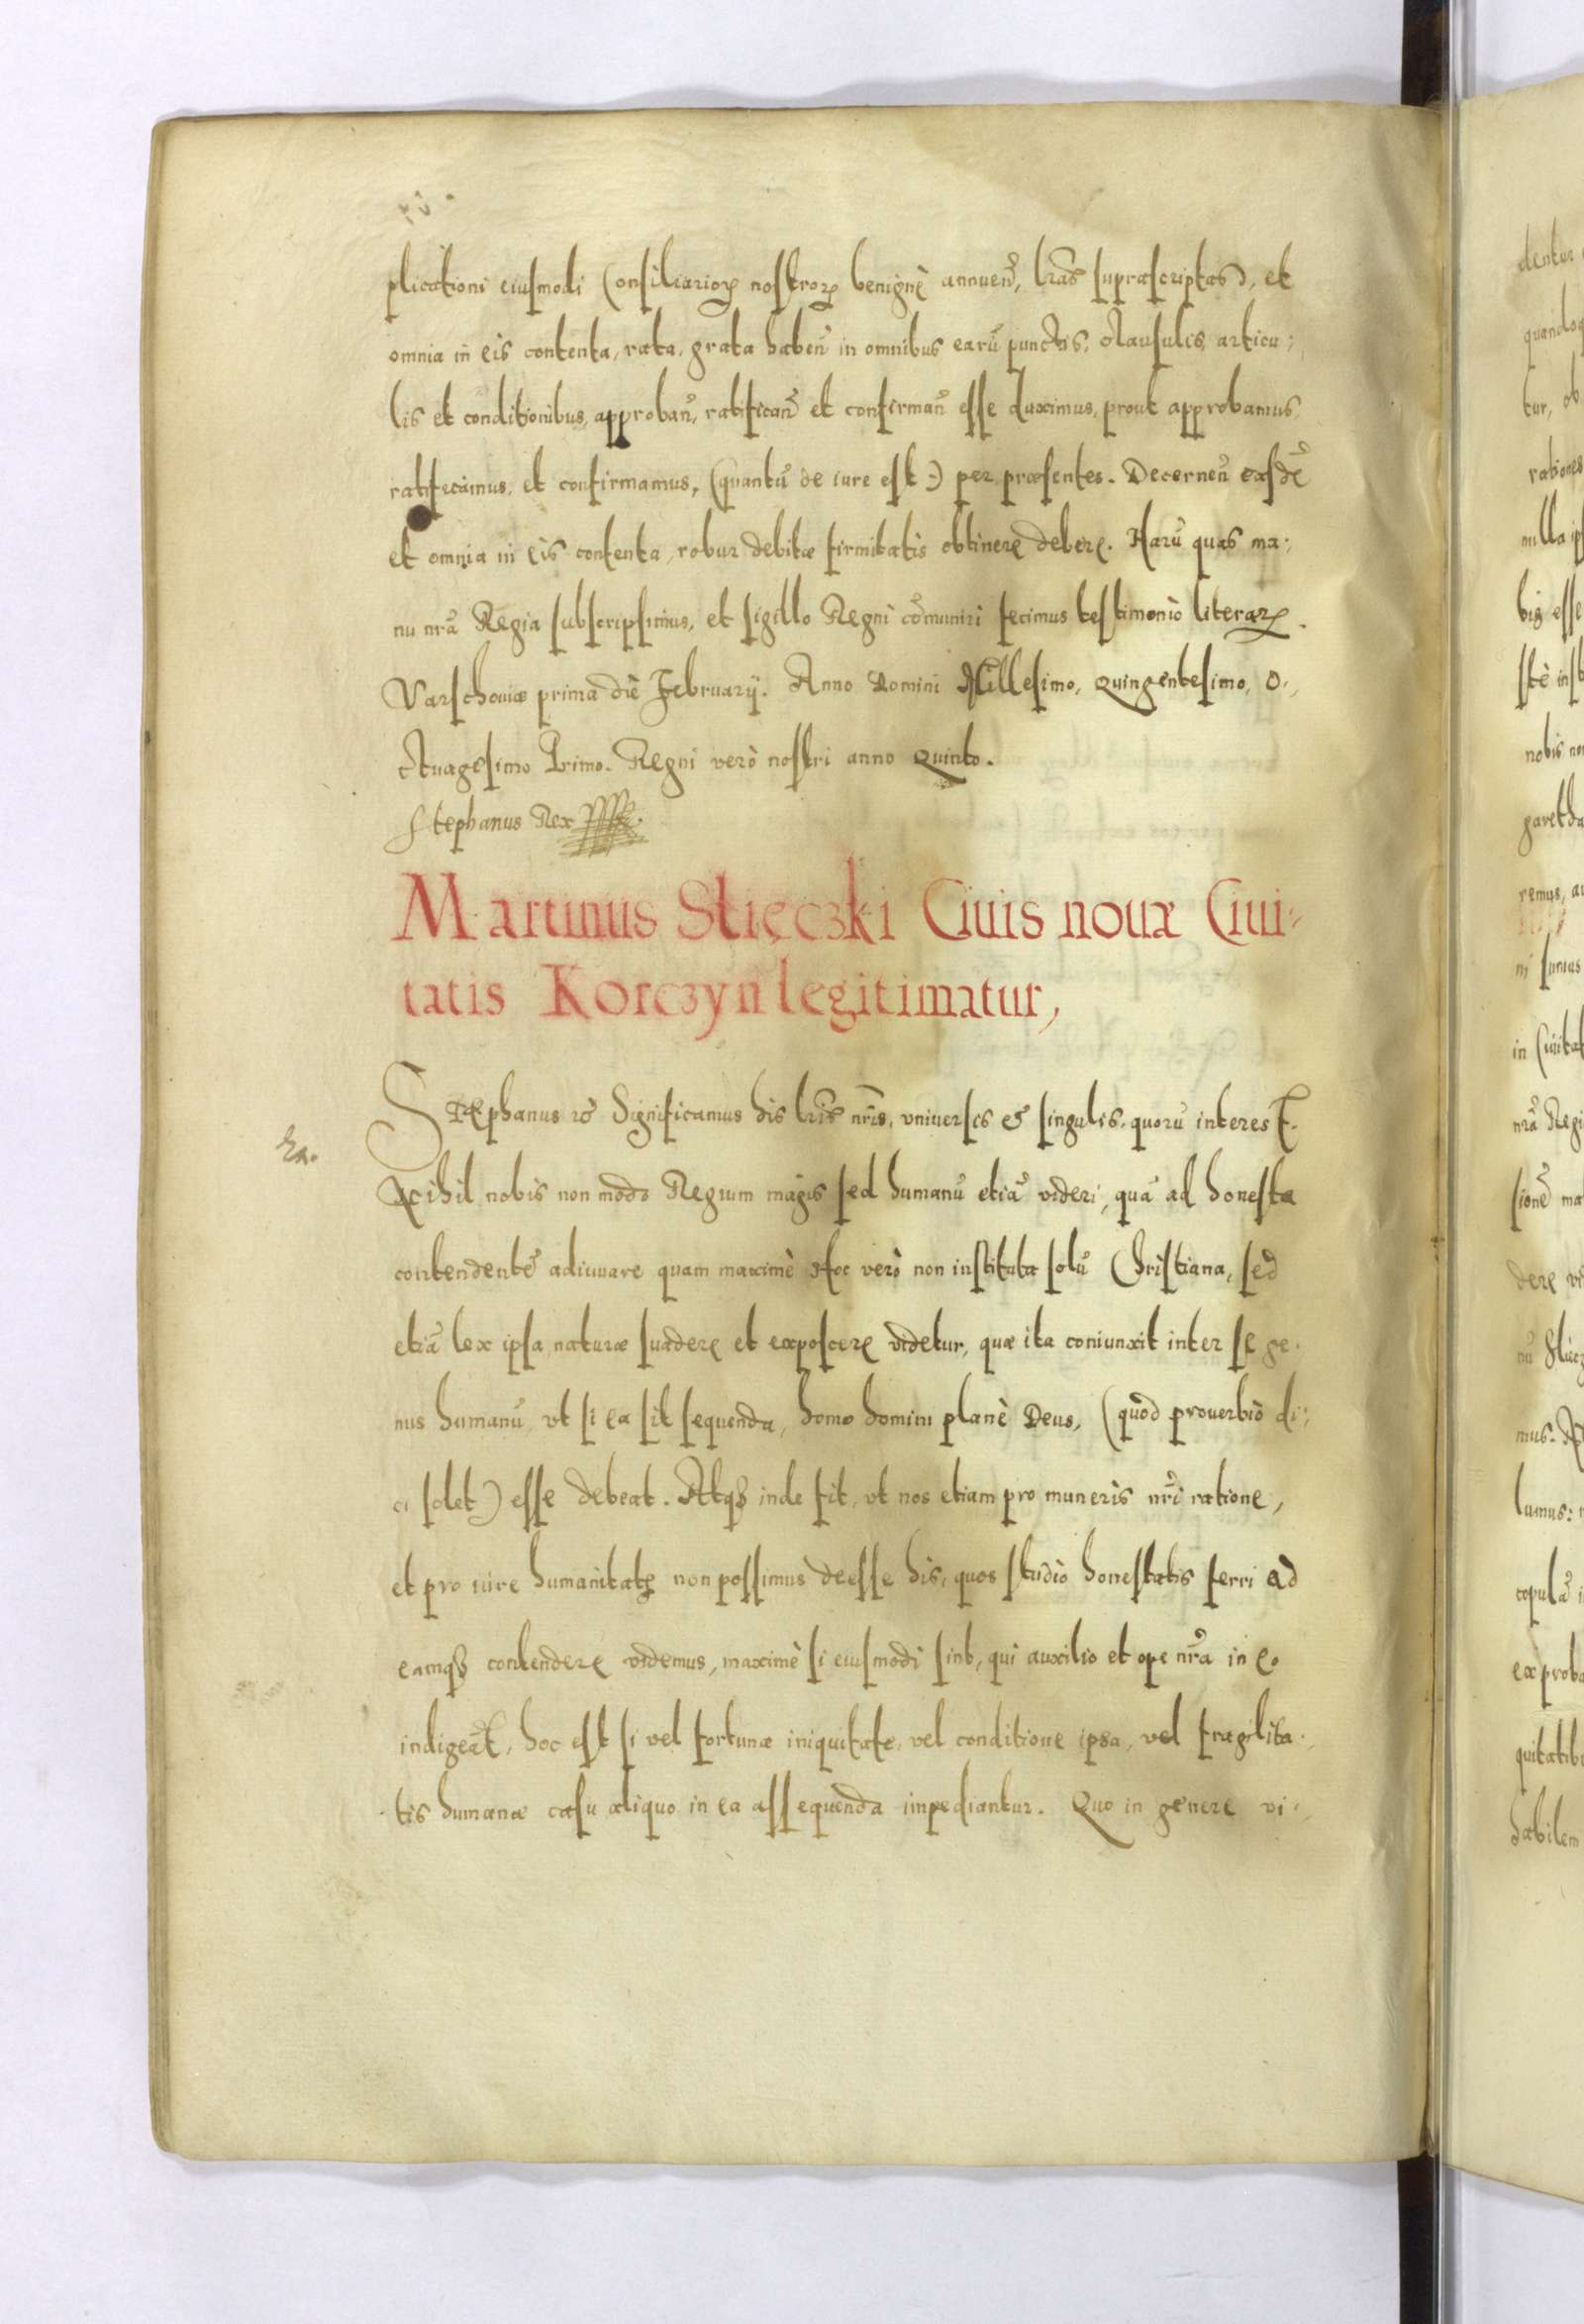 plicationi eiusmodi Consiliarioꝝ nostroꝝ benignè annuen̄, lr̄as supræscriptas, et
omnia in eis contenta, rata, grata haben̄ in omnibus earū punctis, clausulis, articu-
lis et conditionibus, approban̄, ratifican̄ et confirman̄ esse duximus, prout approbamus,
ratificamus, et confirmamus, (quantū de iure est) per præsentes. Decernen̄ easdē
et omnia in eis contenta, robur debitæ firmitatis obtinere debere. Harū quas ma-
nu nr̄a Regia subscripsimus, et sigillo Regni cōmuniri fecimus testimonio literaꝝ.
Varschouiæ prima die February. Anno Domini Millesimo, Quingentesimo, O-
ctuagesimo Primo. Regni verò nostri anno Quinto.
Stephanus Rex
Martinus Slięczki Ciuis nouæ Ciui-
tatis Korczyn legitimatur,
Stephanus Significamus his lr̄is nr̄is, vniuersis et singulis, quorū interest.
Nihil nobis non modo Regium magis sed humanū etiā videri, quā ad honesta
contendentē adiuuare quam maximè Hoc verò non instituta solū Christiana, sed
etiā lex ipsa naturæ suadere et exposcere videtur, quæ ita coniunxit inter se ge-
nus humanū, vt si ea sit sequenda, homo homini planè Deus, (quod prouerbio di-
ci solet) esse debeat. Atqꝫ inde fit, vt nos etiam pro muneris nr̄i ratione,
et pro iure humanitatis non possimus deesse his, quos studio honestatis ferri ad
eamqꝫ contendere videmus, maximè si eiusmodi sint, qui auxilio et ope nr̄a in eo
indigeāt, hoc est si vel fortunæ iniquitate, vel conditione ipsa, vel fragilita-
tis humanæ casu aliquo in ea assequenda impediantur. Quo in genere vi-